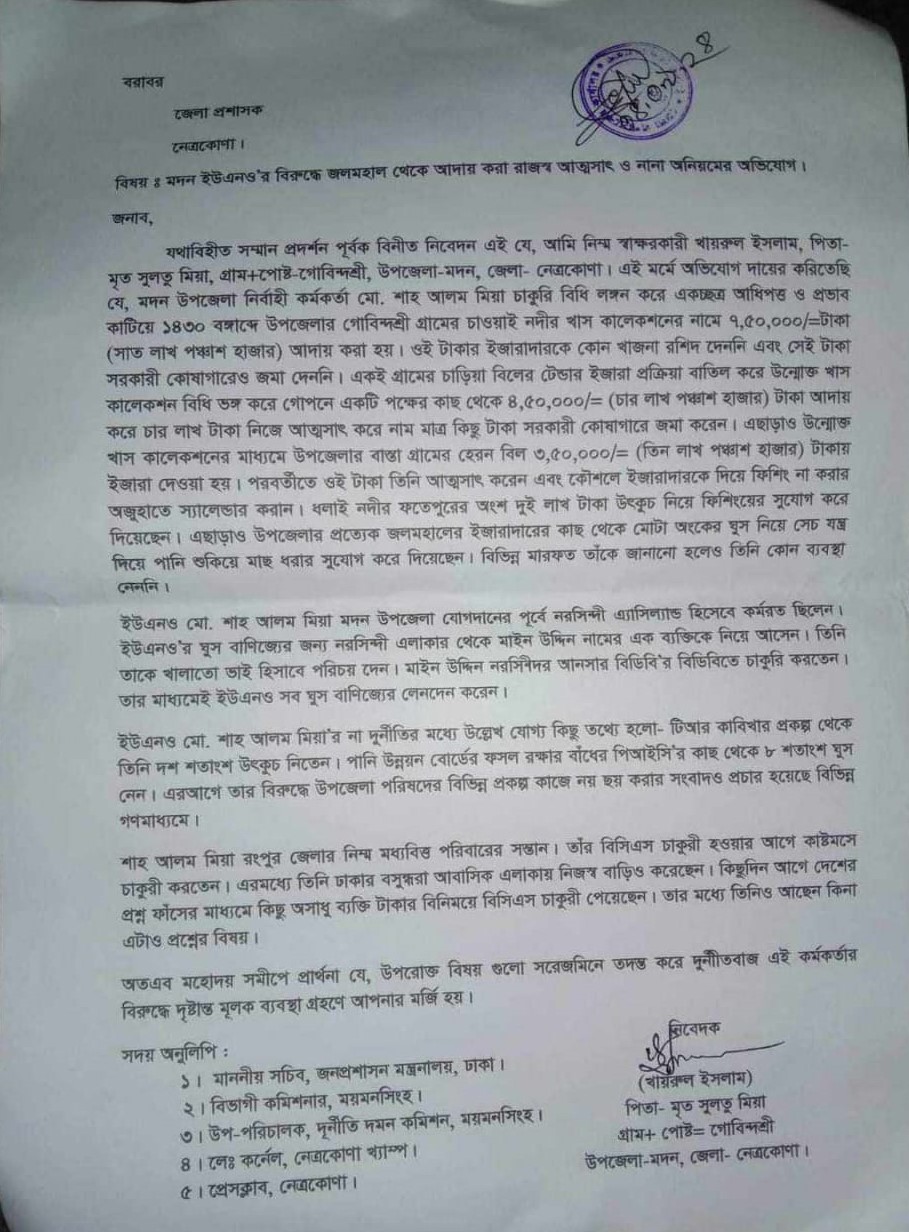 বরাবর
জেলা প্রশাসক
নেত্রকোণা।
বিষয় ঃ মদন ইউএনও'র বিরুদ্ধে জলমহাল থেকে আদায় করা রাজস্ব আত্মসাৎ ও নানা অনিয়মের অভিযোগ।
জনাব,
যথাবিহীত সম্মান প্রদর্শন পূর্বক বিনীত নিবেদন এই যে, আমি নিম্ন স্বাক্ষরকারী খায়রুল ইসলাম, পিতা-
মৃত সুলতু মিয়া, গ্রাম+পোষ্ট-গোবিন্দশ্রী, উপজেলা-মদন, জেলা- নেত্রকোণা। এই মর্মে অভিযোগ দায়ের করিতেছি
যে, মদন উপজেলা নির্বাহী কর্মকর্তা মো. শাহ আলম মিয়া চাকুরি বিধি লঙ্গন করে একচ্ছত্র আধিপত্ত ও প্রভাব
কাটিয়ে ১৪৩০ বঙ্গাব্দে উপজেলার গোবিন্দশ্রী গ্রামের চাওয়াই নদীর খাস কালেকশনের নামে ৭,৫০,০০০/=টাকা
(সাত লাখ পঞ্চাশ হাজার) আদায় করা হয়। ওই টাকার ইজারাদারকে কোন খাজনা রশিদ দেননি এবং সেই টাকা
সরকারী কোষাগারেও জমা দেননি। একই গ্রামের চাড়িয়া বিলের টেন্ডার ইজারা প্রক্রিয়া বাতিল করে উন্মোক্ত খাস
কালেকশন বিধি ভঙ্গ করে গোপনে একটি পক্ষের কাছ থেকে ৪,৫০,০০০/= (চার লাখ পঞ্চাশ হাজার) টাকা আদায়
করে চার লাখ টাকা নিজে আত্মসাৎ করে নাম মাত্র কিছু টাকা সরকারী কোষাগারে জমা করেন। এছাড়াও উন্মোক্ত
খাস কালেকশনের মাধ্যমে উপজেলার বাস্তা গ্রামের হেরন বিল ৩,৫০,০০০/= (তিন লাখ পঞ্চাশ হাজার) টাকায়
ইজারা দেওয়া হয়। পরবর্তীতে ওই টাকা তিনি আত্মসাৎ করেন এবং কৌশলে ইজারাদারকে দিয়ে ফিশিং না করার
অজুহাতে স্যালেন্ডার করান। ধলাই নদীর ফতেপুরের অংশ দুই লাখ টাকা উৎকুচ নিয়ে ফিশিংয়ের সুযোগ করে
দিয়েছেন। এছাড়াও উপজেলার প্রত্যেক জলমহালের ইজারাদারের কাছ থেকে মোটা অংকের ঘুস নিয়ে সেচ যন্ত্র
দিয়ে পানি শুকিয়ে মাছ ধরার সুযোগ করে দিয়েছেন। বিভিন্ন মারফত তাঁকে জানানো হলেও তিনি কোন ব্যবস্থা
নেননি।
ইউএনও মো. শাহ আলম মিয়া মদন উপজেলা যোগদানের পূর্বে নরসিন্দী এ্যাসিল্যান্ড হিসেবে কর্মরত ছিলেন।
ইউএনও'র ঘুস বাণিজ্যের জন্য নরসিন্দী এলাকার থেকে মাইন উদ্দিন নামের এক ব্যক্তিকে নিয়ে আসেন। তিনি
তাকে খালাতো ভাই হিসাবে পরিচয় দেন। মাইন উদ্দিন নরসিংদির আনসার বিডিবি'র বিডিবিতে চাকুরি করতেন।
তার মাধ্যমেই ইউএনও সব ঘুস বাণিজ্যের লেনদেন করেন।
ইউএনও মো. শাহ আলম মিয়া'র না দুর্নীতির মধ্যে উল্লেখ যোগ্য কিছু তথ্যে হলো- টিআর কাবিখার প্রকল্প থেকে
তিনি দশ শতাংশ উৎকুচ নিতেন। পানি উন্নয়ন বোর্ডের ফসল রক্ষার বাঁধের পিআইসি'র কাছ থেকে ৮ শতাংশ ঘুস
নেন। এরআগে তার বিরুদ্ধে উপজেলা পরিষদের বিভিন্ন প্রকল্প কাজে নয় ছয় করার সংবাদও প্রচার হয়েছে বিভিন্ন
গণমাধ্যমে।
শাহ আলম মিয়া রংপুর জেলার নিম্ন মধ্যবিত্ত পরিবারের সন্তান। তাঁর বিসিএস চাকুরী হওয়ার আগে কাষ্টমসে
চাকুরী করতেন। এরমধ্যে তিনি ঢাকার বসুন্ধরা আবাসিক এলাকায় নিজস্ব বাড়িও করেছেন। কিছুদিন আগে দেশের
প্রশ্ন ফাঁসের মাধ্যমে কিছু অসাধু ব্যক্তি টাকার বিনিময়ে বিসিএস চাকুরী পেয়েছেন। তার মধ্যে তিনিও আছেন কিনা
এটাও প্রশ্নের বিষয়।
অতএব মহোদয় সমীপে প্রার্থনা যে, উপরোক্ত বিষয় গুলো সরেজমিনে তদন্ত করে দূর্নীতিবাজ এই কর্মকর্তার
বিরুদ্ধে দৃষ্টান্ত মূলক ব্যবস্থা গ্রহণে আপনার মর্জি হয়।
সদয় অনুলিপি :
১। মাননীয় সচিব, জনপ্রশাসন মন্ত্রনালয়, ঢাকা।
২। বিভাগী কমিশনার, ময়মনসিংহ।
৩। উপ-পরিচালক, দূর্নীতি দমন কমিশন, ময়মনসিংহ।
৪। লেঃ কর্নেল, নেত্রকোণা ক্যাম্প।
৫। প্রেসক্লাব, নেত্রকোণা।
নিবেদক
(খায়রুল ইসলাম)
পিতা- মৃত সুলতু মিয়া
গ্রাম+ পোষ্ট= গোবিন্দশ্রী
উপজেলা-মদন, জেলা- নেত্রকোণা।